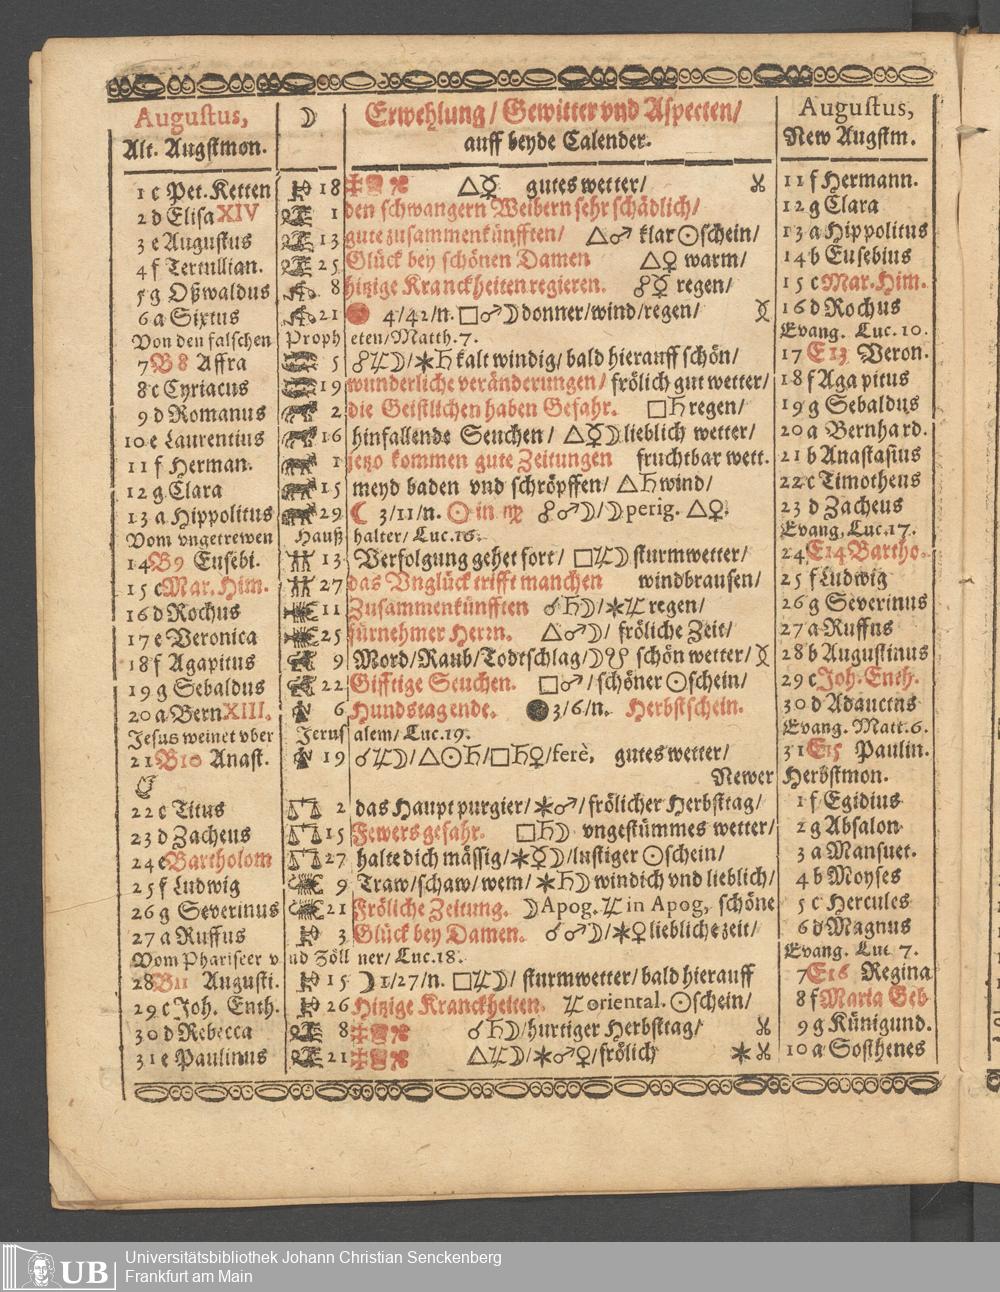 Augustus,
Alt. Augstmon.
☽
Erwehlung/ Gewitter vnd Aspecten/
auff beyde Calender.
Augustus,
New Augstm.
1 c Pet. Ketten 18 △☿ gutes wetter/ 11 f Hermann.
2 d Elisa XIV 1 den schwangern Weibern sehr schädlich/ 12 g Clara
3 e Augustus 13 gute zusammenkünfften/ △♂ klar ☉schein/ 13 a Hippolitus
4 f Tertullian. 25 Glück bey schönen Damen △♀ warm/ 14 b Eusebius
5 g Oßwaldus 8 hitzige Kranckheiten regieren. ☍☿ regen/ 15 c Mar. Him.
6 a Sixtus 21 4/42/n. □♂☽ donner/wind/regen/ 16 d Rochus
Von den falschen Propheten/Matth.7. Evang. Luc. 10.
7 B 8 Affra 5 ☍♃☽/✶♄ kalt windig/ bald hierauff schön/ 17 E13 Veron.
8 c Cyriacus 19 wunderliche veränderungen/ frölich gut wetter/ 18 f Agapitus
9 d Romanus 2 die Geistlichen haben Gefahr. □♄ regen/ 19 g Sebaldus
10 e Laurentius 16 hinfallende Seuchen/ △☿☽ lieblich wetter/ 20 a Bernhard.
11 f Herman. 1 jetzo kommen gute Zeitungen fruchtbar wett. 21 b Anastasius
12 g Clara 15 meyd baden vnd schröpffen/ △♄ wind/ 22 c Timotheus
13 a Hippolitus 29 ☾ 3/11/n. ☉ in ♍ ☍♂☽/☽ perig. △♀. 23 d Zacheus
Vom vngetrewen Haußhalter/ Luc.16. Evang. Luc. 17.
14 B9 Eusebi. 13 Verfolgung gehet fort/ □♃☽ sturmwetter/ 24 E14 Bartho.
15 c Mar. Him. 27 das Vnglück trifft manchen windbrausen/ 25 f Ludwig
16 d Rochus 11 Zusammenkünfften ☌♄☽/✶♃ regen/ 26 g Severinus
17 e Veronica 25 fürnehmer Herrn. △♂☽/ fröliche Zeit/ 27 a Ruffus
18 f Agapitus 9 Mord/Raub/Todtschlag/☽☋ schön wetter/ 28 b Augustinus
19 g Sebaldus 22 Gifftige Seuchen. □♂/ schöner ☉schein/ 29 c Joh. Enth.
20 a Bern XIII. 6 Hundstag ende. 3/6/n. Herbstschein. 30 d Adauctus
Jesus weinet vber Jerusalem/ Luc.19. Evang. Matt. 6.
21 B10 Anast. 19 ☌♃☽/△☉♄/□♄♀/ferè, gutes wetter/ 31 E15 Paulin.
Newer Herbstmon.
22 c Titus 2 das Haupt purgier/✶♂/frölicher Herbsttag/ 1 f Egidius
23 d Zacheus 15 Fewersgefahr. □♄☽ vngestümmes wetter/ 2 g Absalon
24 e Bartholom 27 halte dich mässig/✶☿☽/lustiger ☉schein/ 3 a Mansuet.
25 f Ludwig 9 Traw/schaw/wem/✶♄☽ windich vnd lieblich/ 4 b Moyses
26 g Severinus 21 Fröliche Zeitung. ☽ Apog. ♃ in Apog, schöne 5 c Hercules
27 a Ruffus 3 Glück bey Damen. ☌♂☽/✶♀ liebliche zeit/ 6 d Magnus
Vom Phariseer vnd Zöllner/ Luc.18. Evang. Luc 7.
28 B11 Augusti. 15 ☽ 1/27/n. □♃☽/ sturmwetter/ bald hierauff 7 E16 Regina
29 c Joh. Enth. 26 Hitzige Kranckheiten. ♃ oriental. ☉schein/ 8 f Maria Geb
30 d Rebecca 8 ☌♄☽/hurtiger Herbsttag/ 9 g Künigund.
31 e Paulinus 21 △♃☽/✶♂♀/frölich ✶ 10 a Sosthenes
UB
Universitätsbibliothek Johann Christian Senckenberg
Frankfurt am Main